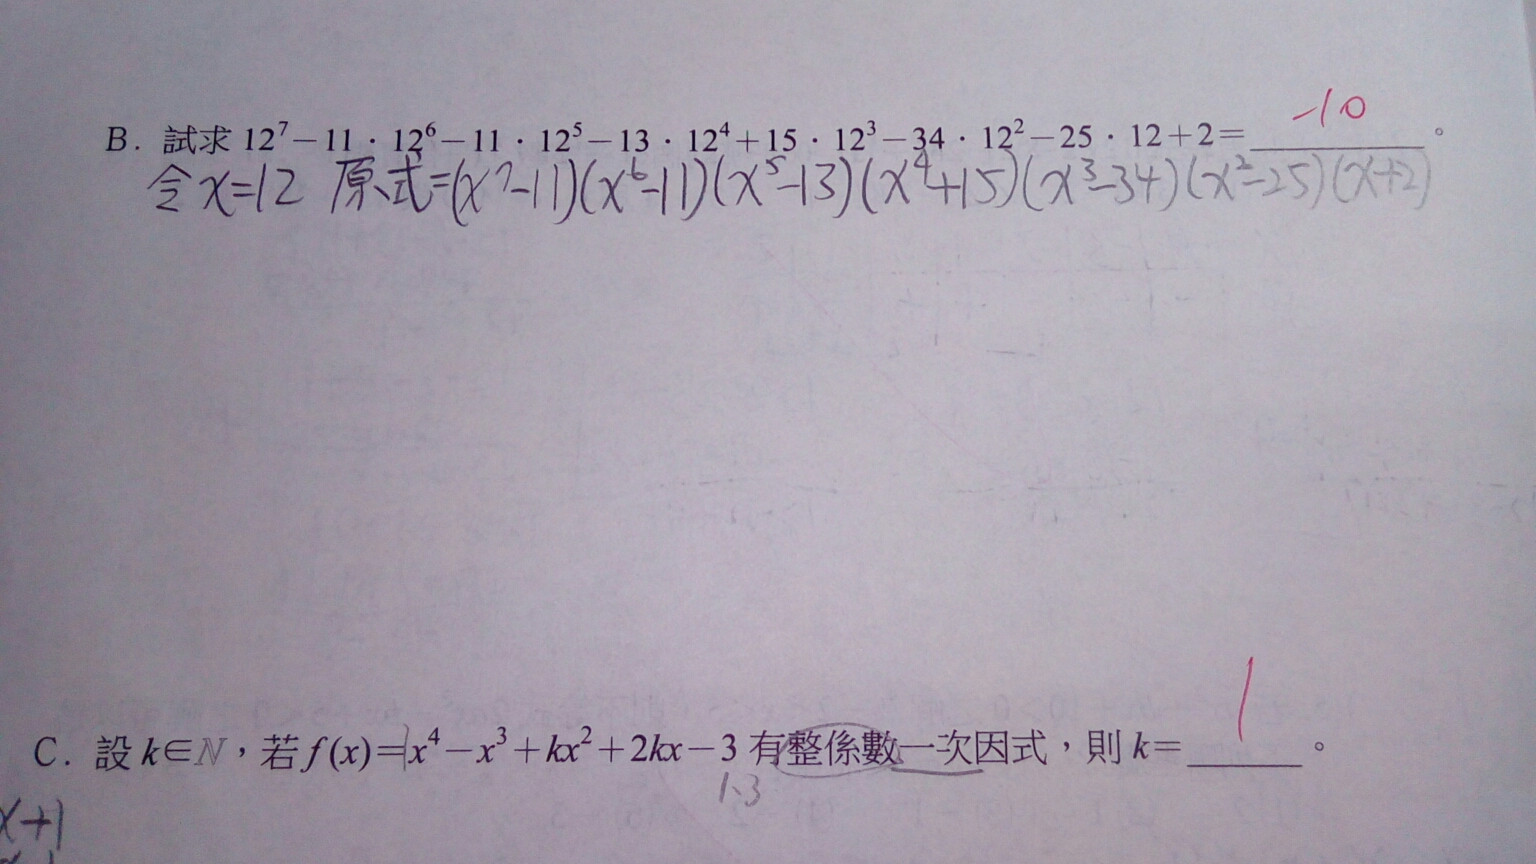 B. 試求 12⁷－11．12⁶－11．12⁵－13．12⁴＋15．12³－34．12²－25．12＋2＝ -10 。
令 x=12 原式=(x⁷-11)(x⁶-11)(x⁵-13)(x⁴+15)(x³-34)(x²-25)(x+2)
C. 設 k∈N，若 f(x)=x⁴－x³＋kx²＋2kx－3 有整係數一次因式，則 k＝ 1 。
1、3
x+1